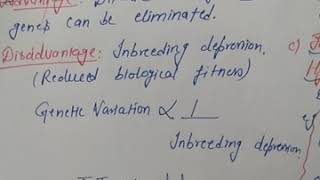 genes can be eliminated.
Disadvantage: Inbreeding depression.
(Reduced biological fitness)
c)
Genetic Variation ∝ 1
Inbreeding depression